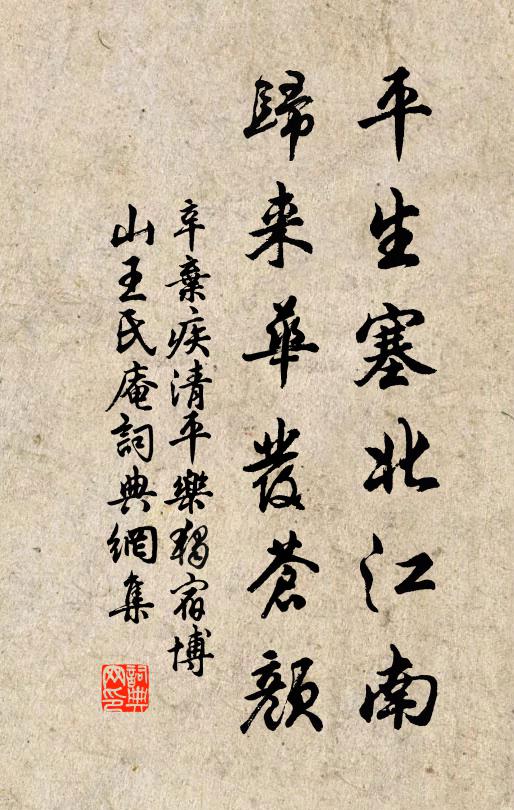 平生塞北江南
歸来華髮蒼顏
辛棄疾清平樂獨宿博
山王氏庵詞典網集
詞典网印